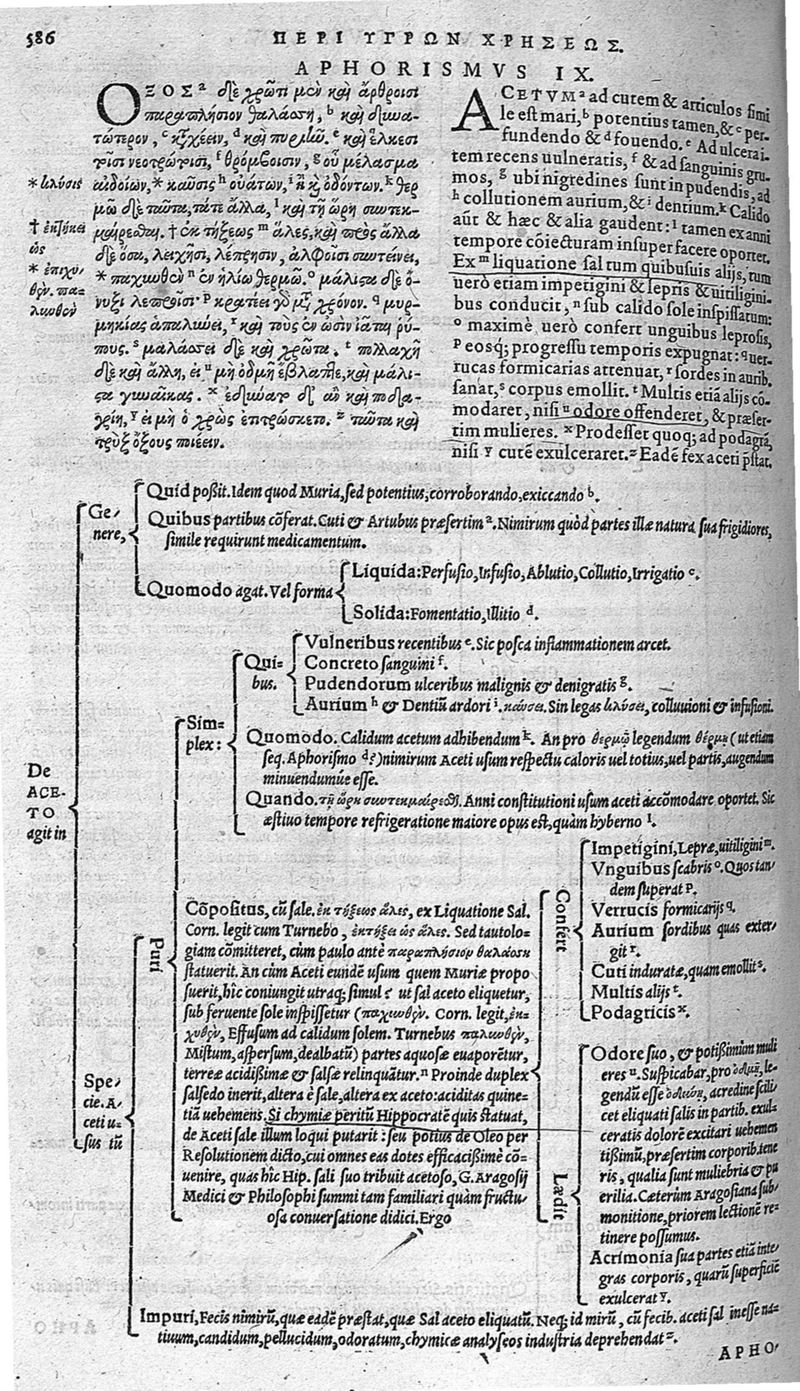 586
ΠΕΡΙ ΥΓΡΩΝ ΧΡΗΣΕΩΣ.
APHORISMVS IX.
ΟΞΟΣ ᵃ δὲ χρωτὶ μὲν καὶ ἄρθροισι
παραπλήσιον θαλάσσῃ, ᵇ καὶ δυνα-
τώτερον, ᶜ καταχέειν, ᵈ καὶ πυριᾶν. ᵉ καὶ ἕλκεσι
τοῖσι νεοτρώτοισι, ᶠ θρόμβοισιν, ᵍ οὗ μέλασμα
αἰδοίων, * καῦσις ʰ οὐάτων, ⁱ ἢ καὶ ὀδόντων. ᵏ θερ
μῷ δὲ ταῦτα, τά τε ἄλλα, ˡ καὶ τῇ ὥρῃ συντεκ-
μαίρεσθαι. † ἐκ τήξεως ᵐ ἅλες, καὶ πρὸς ἄλλα
δὲ ὅσα, λειχῆσι, λέπρῃσιν, ἀλφοῖσι συντείνει,
* παχυνθὲν ⁿ ἐν ἡλίῳ θερμῷ. ᵒ μάλιστα δὲ ὄ-
νυξι λεπροῖσι· ᵖ κρατέει γὰρ μετὰ χρόνον. ᑫ μυρ-
μηκίας ἁπαλύνει, ʳ καὶ τοὺς ἐν ὠσὶν ἰᾶται ῥύ-
πους. ˢ μαλάσσει δὲ καὶ χρῶτα. ᵗ πολλαχῆ
δὲ καὶ ἄλλῃ, εἰ ᵘ μὴ ὀδμῇ ἔβλαπτε, καὶ μάλι-
στα γυναῖκας. ˣ ἐδύνατ' δ' ἂν καὶ ποδα-
γρίῃ, ʸ εἰ μὴ ὁ χρὼς ἐπιτρώσκετο. ᶻ ταῦτα καὶ
τρὺξ ὄξους ποιέειν.
* κλύσις
† ἐκτήκει
ὡς
* ἐπιχυ-
θὲν. πα-
λυνθὲν
ACETVM ᵃ ad cutem & articulos simi
le est mari, ᵇ potentius tamen, & ᶜ per-
fundendo & ᵈ fouendo. ᵉ Ad ulcera i-
tem recens uulneratis, ᶠ & ad sanguinis gru-
mos, ᵍ ubi nigredines sunt in pudendis, ad
ʰ collutionem aurium, & ⁱ dentium. ᵏ Calido
aũt & hæc & alia gaudent: ˡ tamen ex anni
tempore cõiecturam insuper facere oportet.
Ex ᵐ liquatione sal tum quibusuis alijs, tum
uerò etiam impetigini & lepris & uitiligini-
bus conducit, ⁿ sub calido sole inspissatum:
ᵒ maximè uerò confert unguibus leprosis,
ᵖ eosq; progressu temporis expugnat: ᑫ uer-
rucas formicarias attenuat, ʳ sordes in aurib.
sanat, ˢ corpus emollit. ᵗ Multis etiã alijs cõ-
modaret, nisi ᵘ odore offenderet, & præser-
tim mulieres. ˣ Prodesset quoq; ad podagrã,
nisi ʸ cutẽ exulceraret. ᶻ Eadẽ fex aceti præstat.
De
ACE-
TO
agit in
Ge-
nere,
Quid poßit. Idem quod Muria, sed potentius, corroborando, exiccando ᵇ.
Quibus partibus cõferat. Cuti & Artubus præsertim ᵃ. Nimirum quòd partes illæ natura sua frigidiores,
simile requirunt medicamentum.
Quomodo agat. Vel forma
Liquida: Perfusio, Infusio, Ablutio, Collutio, Irrigatio ᶜ.
Solida: Fomentatio, Illitio ᵈ.
Spe-
cie. A-
ceti u-
sus tũ
Puri
Sim-
plex:
Qui-
bus.
Vulneribus recentibus ᵉ. Sic posca inflammationem arcet.
Concreto sanguini ᶠ.
Pudendorum ulceribus malignis & denigratis ᵍ.
Aurium ʰ & Dentiũ ardori ⁱ. καύσει. Sin legas κλύσει, colluuioni & infusioni.
Quomodo. Calidum acetum adhibendum ᵏ. An pro θερμῷ legendum θέρμῃ (ut etiam
seq. Aphorismo ᵈ?) nimirum Aceti usum respectu caloris uel totius, uel partis, augendum
minuendumúe esse.
Quando. τῇ ὥρῃ συντεκμαίρεσθαι. Anni constitutioni usum aceti accõmodare oportet. Sic
æstiuo tempore refrigeratione maiore opus est, quàm hyberno ˡ.
Cõpositus, cũ sale. ἐκ τήξεως ἅλες, ex Liquatione Sal.
Corn. legit cum Turnebo, ἐκτήξα ὡς ἅλες. Sed tautolo-
giam cõmitteret, cùm paulo antè παραπλήσιον θαλάσσῃ
statuerit. An cùm Aceti eundẽ usum quem Muriæ propo
suerit, hîc coniungit utraq; simul: ut sal aceto eliquetur,
sub feruente sole inspissetur (παχυνθὲν. Corn. legit, ἐπι-
χυθὲν, Effusum ad calidum solem. Turnebus παλυνθὲν,
Mistum, aspersum, dealbatũ) partes aquosæ euaporẽtur,
terreæ acidißimæ & salsæ relinquãtur. ⁿ Proinde duplex
salsedo inerit, altera è sale, altera ex aceto: aciditas quine-
tiã uehemens. Si chymiæ peritũ Hippocratẽ quis statuat,
de Aceti sale illum loqui putarit: seu potius de Oleo per
Resolutionem dicto, cui omnes eas dotes efficacißimè cõ-
uenire, quas hîc Hip. sali suo tribuit acetoso, G. Aragosij
Medici & Philosophi summi tam familiari quàm fructu-
osa conuersatione didici. Ergo
Confert
Impetigini, Lepræ, uitiligini ᵐ.
Vnguibus scabris ᵒ. Quos tan-
dem superat ᵖ.
Verrucis formicarijs ᑫ.
Aurium sordibus quas exter-
git ʳ.
Cuti induratæ, quam emollit ˢ.
Multis alijs ᵗ.
Podagricis ˣ.
Lædit
Odore suo, & potißimùm muli
eres ᵘ. Suspicabar, pro ὀδμῇ, le-
gendũ esse ὀδύνη, acredine scili-
cet eliquati salis in partib. exul-
ceratis dolorẽ excitari uehemen
tißimũ, præsertim corporib. tene
ris, qualia sunt muliebria & pu
erilia. Cæterùm Aragosiana sub-
monitione, priorem lectionẽ re-
tinere possumus.
Acrimonia sua partes etiã inte-
gras corporis, quarũ superficiẽ
exulcerat ʸ.
Impuri, Fecis nimirũ, quæ eadẽ præstat, quæ Sal aceto eliquatũ. Neq; id mirũ, cũ fecib. aceti sal inesse na-
tiuum, candidum, pellucidum, odoratum, chymicæ analyseos industria deprehendat ᶻ.
APHO-